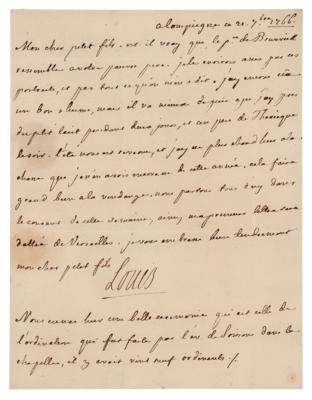 a Compiegne ce 21. 7bre 1766
Mon cher petit fils, est il vray que le pce de Brunswick
ressemble a votre pauvre pere. je le croirois assez par ses
portraits, et par tout ce qu'on m'en a dit. j'ay encore eüe
un bon rhume, mais il va mieux depuis que j'ay pris
du petit lait pendant deux jours, et un peu de Theriaque
le soir. l'eté nous est revenu, et j'ay eu plus chaud hier a la
chasse que je n'en avois encore eu de cette année. cela faira
grand bien a la vendange. nous partons tous d'icy dans
le courant de cette semaine, ainsy ma premiere lettre sera
dattée de Versailles. je vous embrasse bien tendrement
mon cher petit fils
Louis
Nous eumes hier une belle ceremonie qui est celle de
l'ordination qui fut faite par l'ev. de Soissons dans la
chapelle, il y avoit vint neuf ordinants ./.